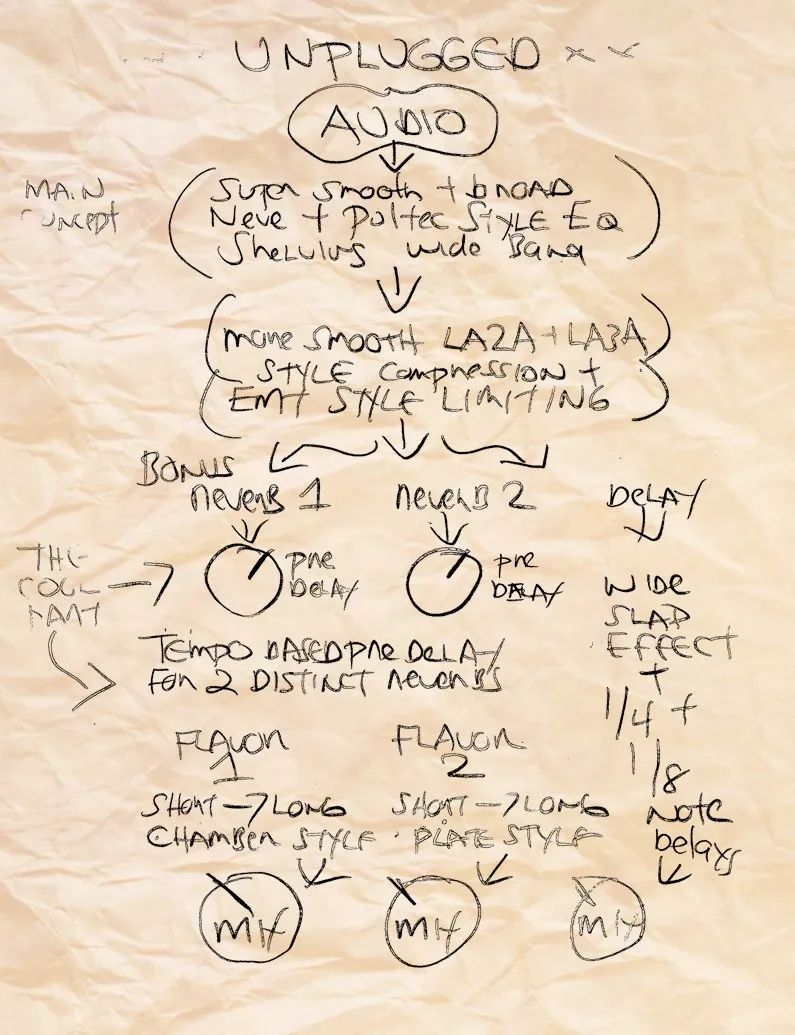 UNPLUGGED
AUDIO
MAIN
CONCEPT
Super Smooth + broad
Neve + Pultec Style EQ
Shelving wide Band
more smooth LA2A + LA3A
STYLE compression +
EMT STYLE LIMITING
BONUS
reverb 1
reverb 2
DELAY
THE
COOL
PART
pre
DELAY
pre
DELAY
WIDE
SLAP
EFFECT
+
1/4 +
1/8
NOTE
delays
TEMPO BASED pre DELAY
For 2 DISTINCT reverbs
FLAVOR
1
FLAVOR
2
SHORT → LONG
CHAMBER STYLE
SHORT → LONG
PLATE STYLE
MIX
MIX
MIX